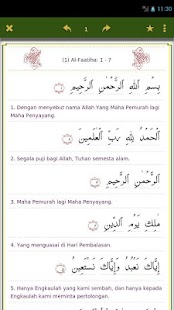 11:30
1
(1) Al-Faatiha: 1 - 7
بِسْمِ ٱللَّهِ ٱلرَّحْمَٰنِ ٱلرَّحِيمِ
1. Dengan menyebut nama Allah Yang Maha Pemurah lagi
Maha Penyayang.
ٱلْحَمْدُ لِلَّهِ رَبِّ ٱلْعَٰلَمِينَ
2. Segala puji bagi Allah, Tuhan semesta alam.
ٱلرَّحْمَٰنِ ٱلرَّحِيمِ
3. Maha Pemurah lagi Maha Penyayang.
مَٰلِكِ يَوْمِ ٱلدِّينِ
4. Yang menguasai di Hari Pembalasan.
إِيَّاكَ نَعْبُدُ وَإِيَّاكَ نَسْتَعِينُ
5. Hanya Engkaulah yang kami sembah, dan hanya kepada
Engkaulah kami meminta pertolongan.